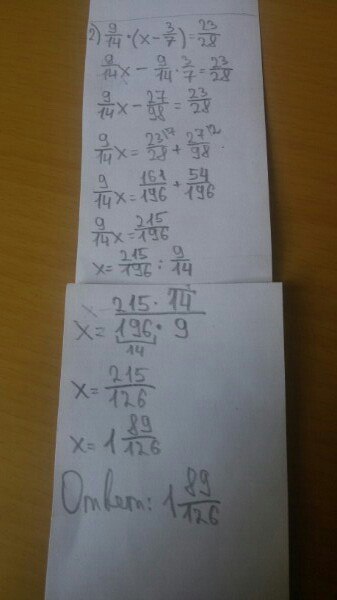 2) 9/14 · (x - 3/7) = 23/28
9/14 x - 9/14 · 3/7 = 23/28
9/14 x - 27/98 = 23/28
9/14 x = 23/28 ⁷ + 27/98 ²
9/14 x = 161/196 + 54/196
9/14 x = 215/196
x = 215/196 : 9/14
x = 215 · 14 / 196 · 9
14
x = 215/126
x = 1 89/126
Ответ: 1 89/126